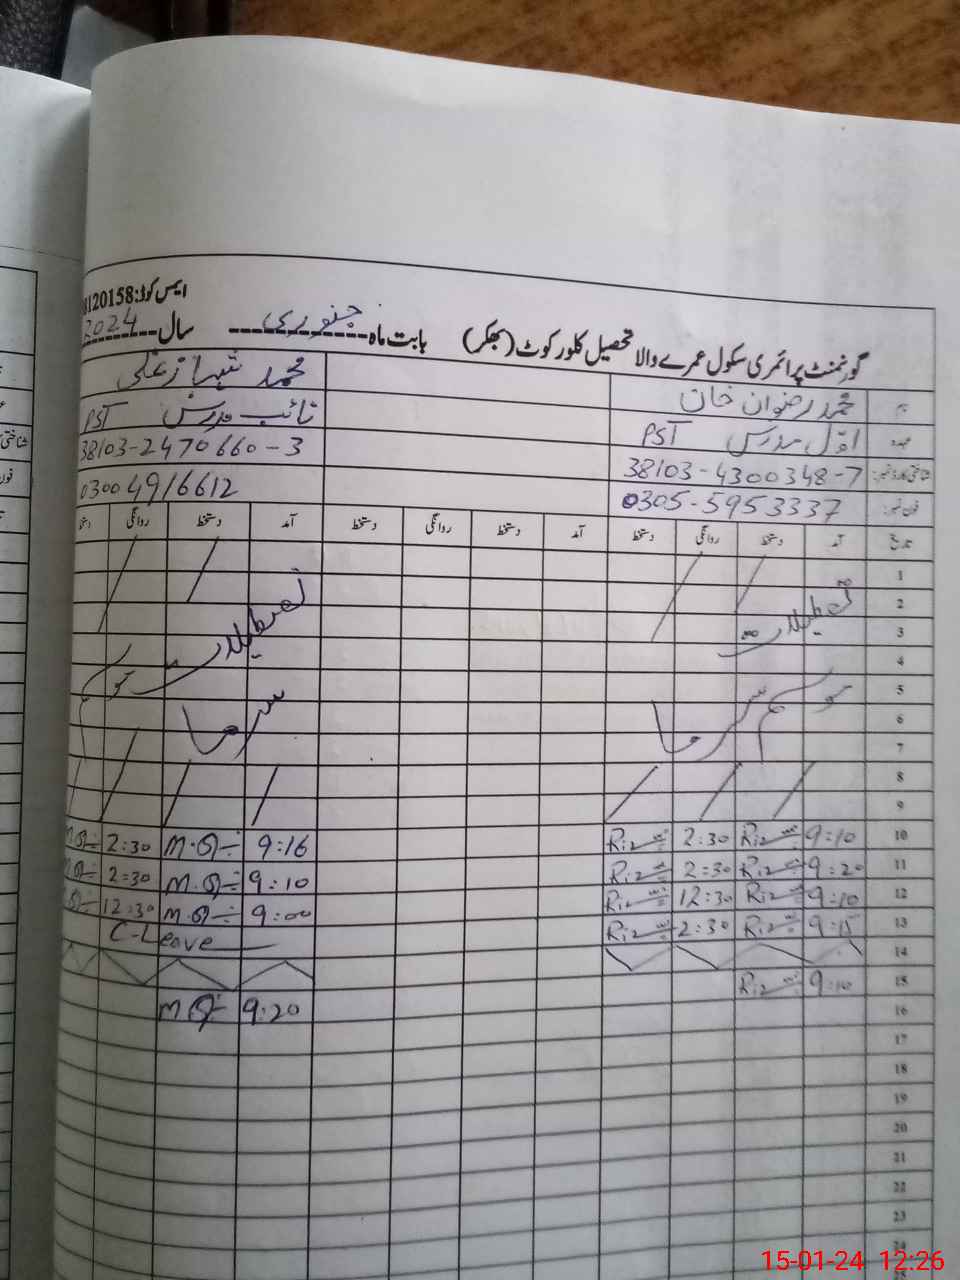 ایمس کوڈ: 8120158
گورنمنٹ پرائمری سکول عمرے والا تحصیل کلور کوٹ (بھکر) بابت ماہ جنوری سال 2024
نام محمد رضوان خان محمد شہباز علی
عہدہ اوّل مدرس PST نائب مدرس PST
شناختی کارڈ نمبر: 38103-4300348-7 38103-2470660-3
فون نمبر: 0305-5953337 03004916612
تاریخ آمد دستخط روانگی دستخط آمد دستخط روانگی دستخط آمد دستخط روانگی دستخط
1
2 تعطیلات تعطیلات
3
4
5 موسم سرما موسم سرما
6
7
8
9
10 9:10 Riz 2:30 Riz 9:16 M.S 2:30 M.S
11 9:20 Riz 2:30 Riz 9:10 M.S 2:30 M.S
12 9:10 Riz 12:30 Riz 9:00 M.S 12:30
13 9:15 Riz 2:30 Riz C-Leave
14
15 9:10 Riz 9:20 M.S
16
17
18
19
20
21
22
23
24
15-01-24 12:26